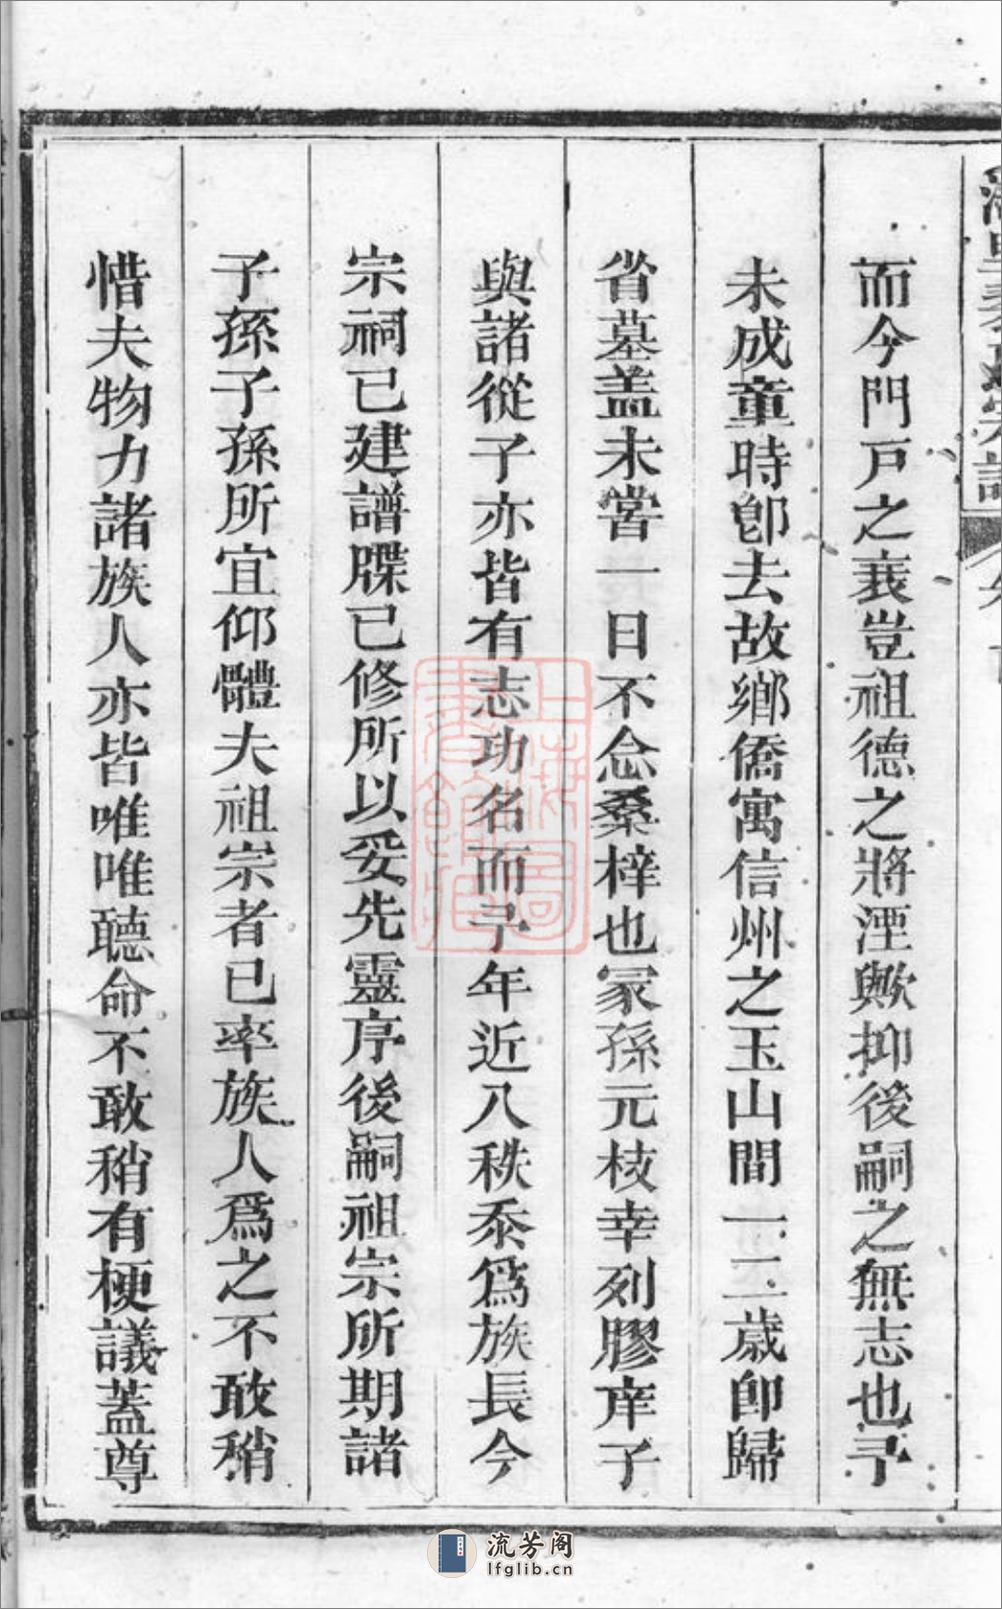 而今門戸之衰豈祖德之將湮歟抑後嗣之無志也予
未成童時卽去故鄉僑寓信州之玉山間一二歲卽歸
省墓盖未嘗一日不念桑梓也冢孫元枝幸列膠庠子
與諸從子亦皆有志功名而予年近八秩忝爲族長今
宗祠已建譜牒已修所以妥先靈序後嗣祖宗所期諸
子孫子孫所宜仰體夫祖宗者已率族人爲之不敢稍
惜夫物力諸族人亦皆唯唯聽命不敢稍有梗議蓋尊
上海圖書館藏
流芳阁
lfglib.cn